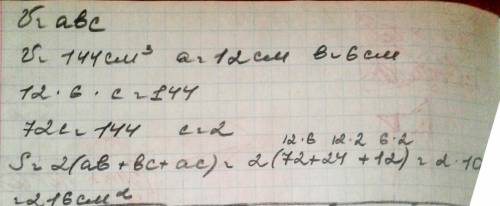 V = abc
V = 144 см³ a = 12 см b = 6 см
12 · 6 · c = 144
72c = 144 c = 2
12·6 12·2 6·2
S = 2(ab + bc + ac) = 2(72+24 +12) = 2 · 10
= 216 см²